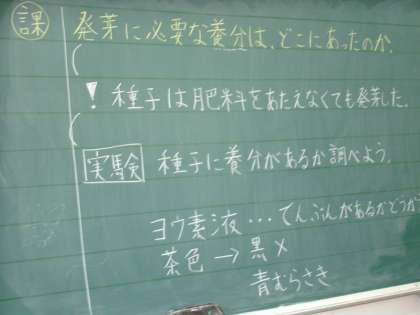 課 発芽に必要な養分は、どこにあったのか。
! 種子は肥料をあたえなくても発芽した。
実験 種子に養分があるか調べよう。
ヨウ素液…でんぷんがあるかどうか
茶色→黒×
青むらさき